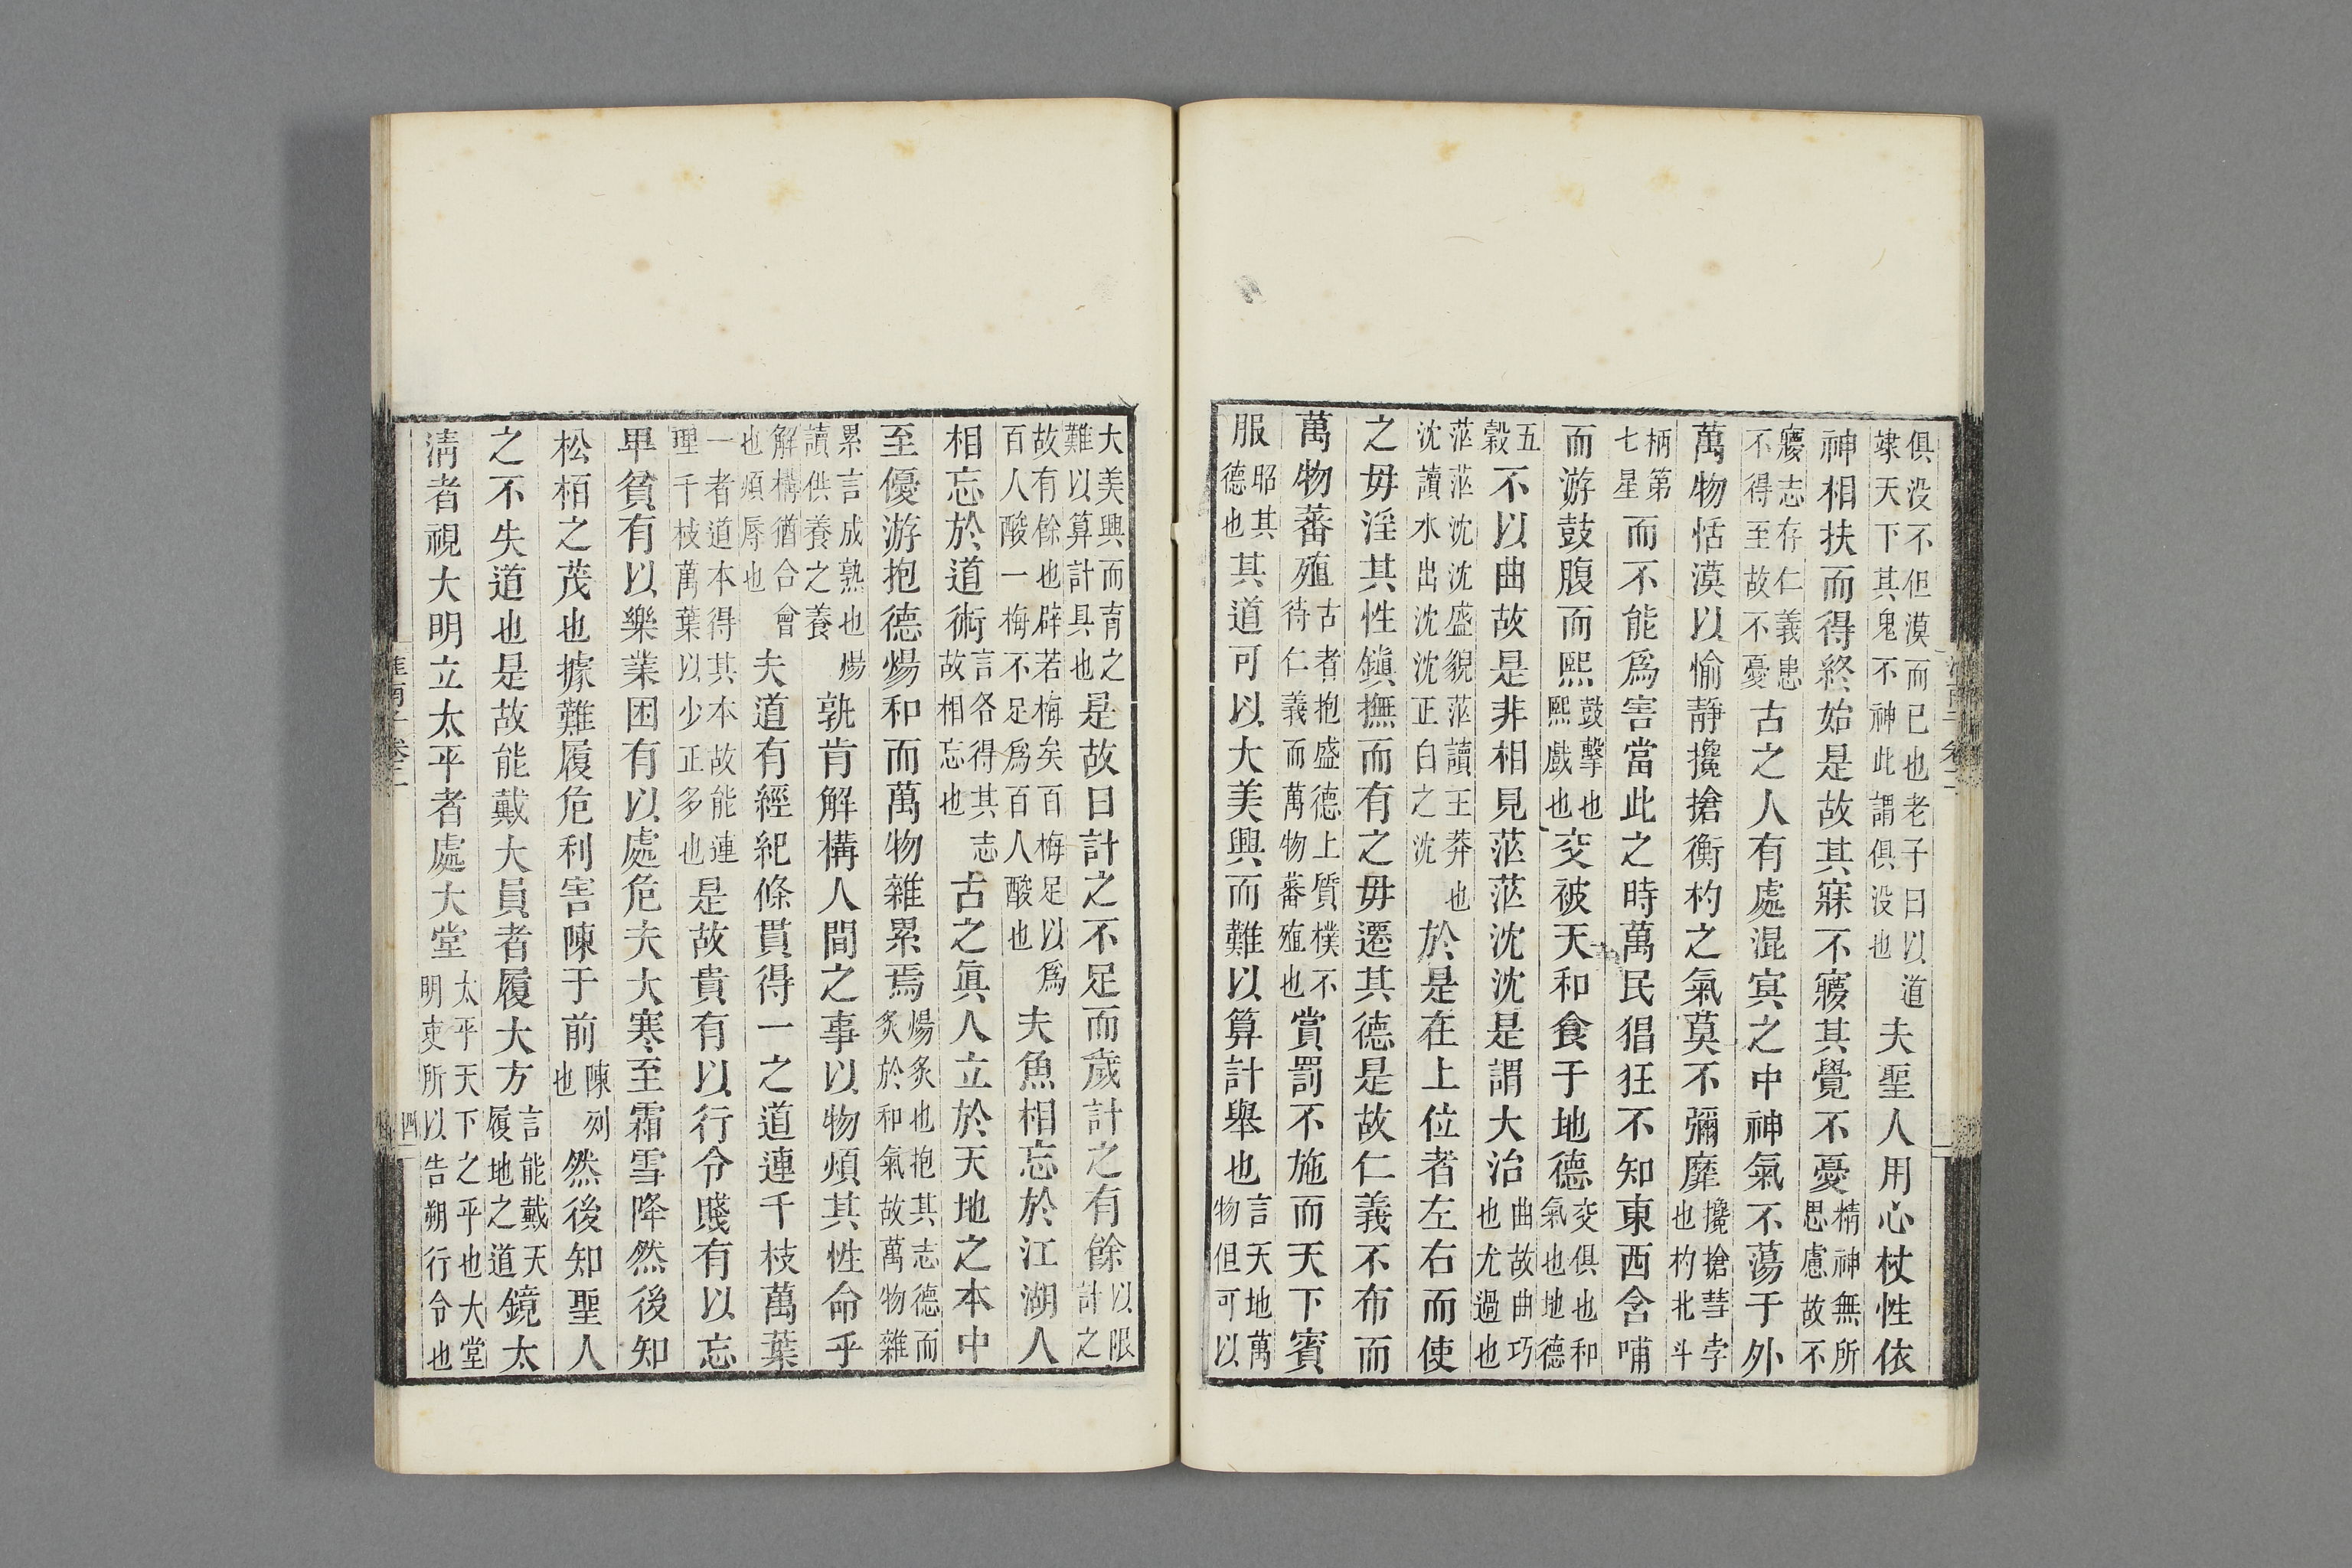 俱没不但漠而已也老子曰以道
𨽻天下其鬼不神此謂俱没也夫聖人用心杖性依
神相扶而得終始是故其寐不寢其覺不憂精神無所
思慮故不
寢志存仁義患
不得至故不憂古之人有處混冥之中神氣不蕩于外
萬物恬漠以愉靜攙搶衡杓之氣莫不彌靡攙搶彗孛
也杓北斗
柄第
七星而不能爲害當此之時萬民猖狂不知東西含哺
而游鼓腹而熙鼓擊也
熙戲也交被天和食于地德交俱也和
氣也地德
五
穀不以曲故是非相見茫茫沈沈是謂大治曲故曲巧
也尤過也
茫茫沈沈盛貌茫讀王莽也
沈讀水出沈沈正白之沈於是在上位者左右而使
之毋淫其性鎮撫而有之毋遷其德是故仁義不布而
萬物蕃殖古者抱盛德上質樸不
待仁義而萬物蕃殖也賞罰不施而天下賓
服昭其
德也其道可以大美興而難以算計舉也言天地萬
物但可以
大美興而育之
難以算計具也是故日計之不足而歲計之有餘以限
計之
故有餘也辟若梅矣百梅足以爲
百人酸一梅不足爲百人酸也夫魚相忘於江湖人
相忘於道術言各得其志
故相忘也古之眞人立於天地之本中
至優游抱德煬和而萬物雜累焉煬炙也抱其志德而
炙於和氣故萬物雜
累言成熟也煬
讀供養之養孰肯解構人間之事以物煩其性命乎
解構猶合會
也煩辱也夫道有經紀條貫得一之道連千枝萬葉
一者道本得其本故能連
理千枝萬葉以少正多也是故貴有以行令賤有以忘
卑貧有以樂業困有以處危夫大寒至霜雪降然後知
松栢之茂也據難履危利害陳于前陳列
也然後知聖人
之不失道也是故能戴大員者履大方言能戴天
履地之道鏡太
淸者視大明立太平者處大堂太平天下之平也大堂
明吏所以告朔行令也
淮南子卷二
四